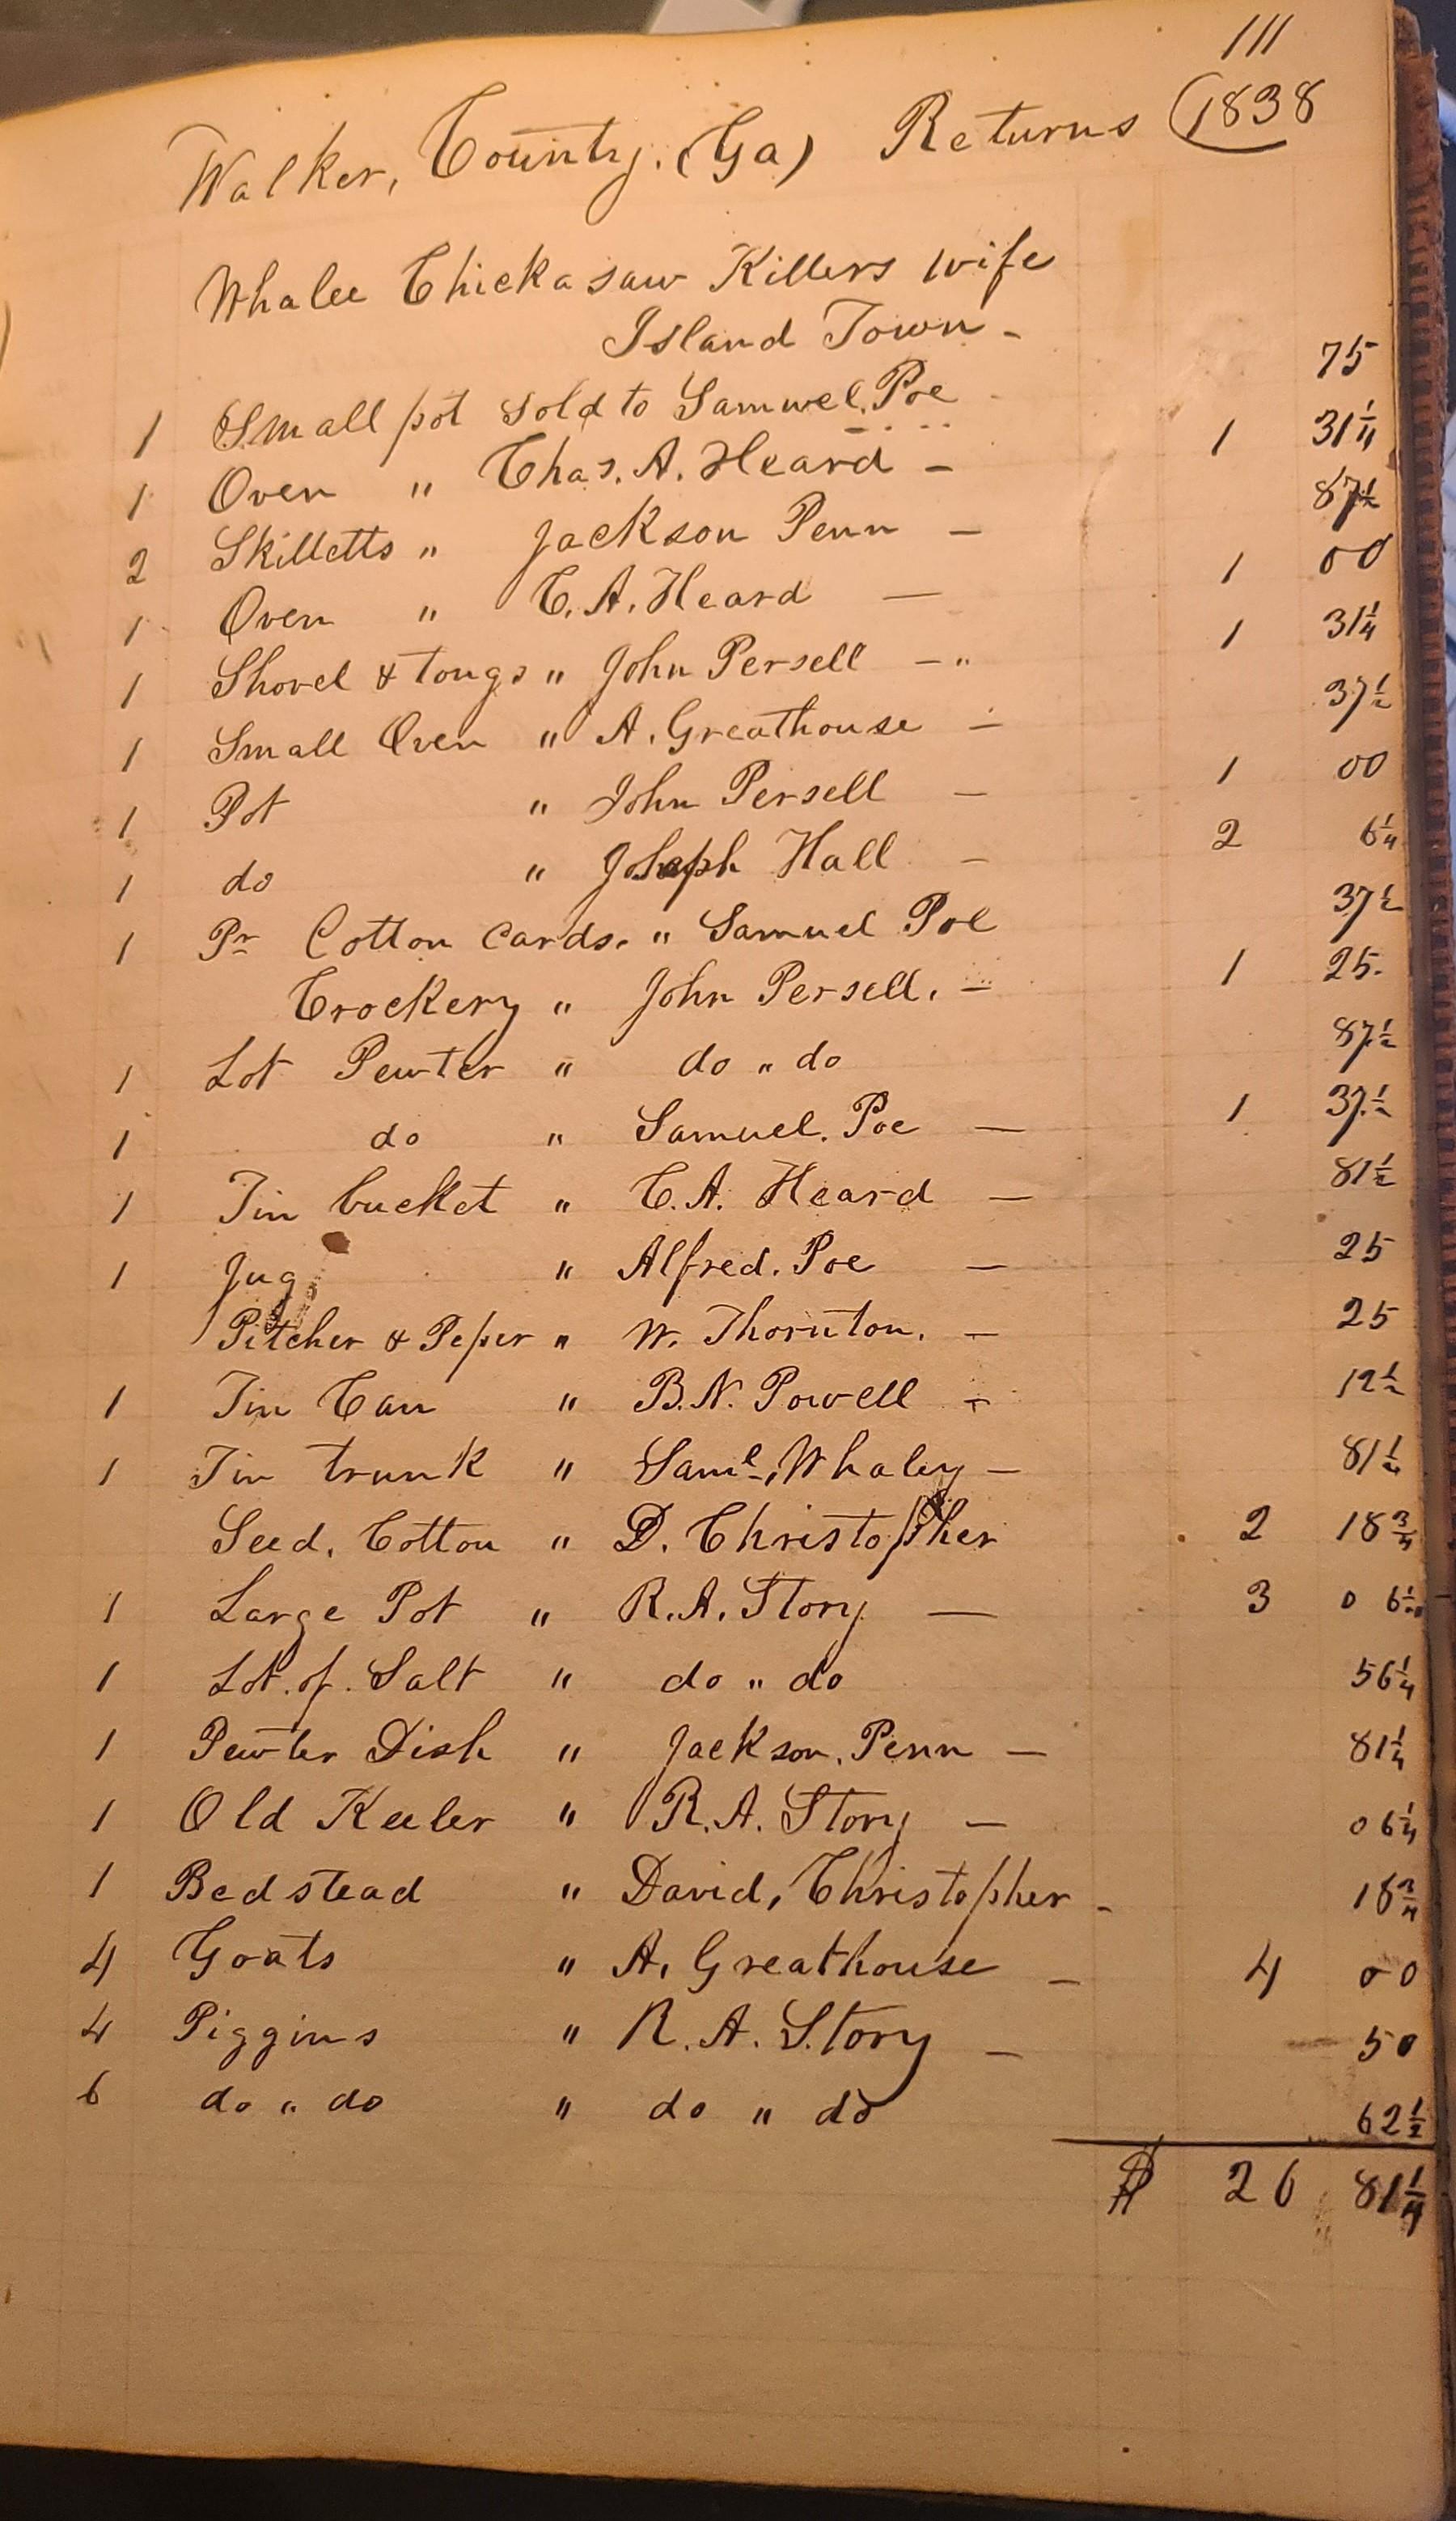 111
Walker, County. (Ga) Returns (1838
Whalee Chickasaw Killers wife
Island Town -
1 Small pot sold to Samuel. Poe 75
1 Oven " Chas. A. Heard - 1 31 1/4
2 Skilletts " Jackson Penn - 87 1/2
1 Oven " C. A. Heard — 1 00
1 Shovel & tongs " John Persell - " 1 31 1/4
1 Small Oven " A. Greathouse - 37 1/2
1 Pot " John Persell - 1 00
1 do " Joseph Hall - 2 6 1/4
1 Pr Cotton Cards. " Samuel Poe 37 1/2
Crockery " John Persell. - 1 25.
1 Lot Pewter " do " do 87 1/2
1 do " Samuel. Poe — 1 37 1/2
1 Tin bucket " C. A. Heard — 81 1/2
1 Jug " Alfred. Poe — 25
1 Pitcher & Peper " W. Thornton. - 25
1 Tin Can " B. N. Powell - 12 1/2
1 Tin trunk " Saml. Whaley - 81 1/4
Seed. Cotton " D. Christopher 2 18 3/4
1 Large Pot " R. A. Story — 3 0 6 1/4
1 Lot. of. Salt " do " do 56 1/4
1 Pewter Dish " Jackson. Penn - 81 1/4
1 Old Keeler " R. A. Story - 0 6 1/4
1 Bedstead " David, Christopher - 18 3/4
4 Goats " A. Greathouse - 4 00
4 Piggins " R. A. Story - 50
6 do " do " do " do 62 1/2
$ 26 81 1/4